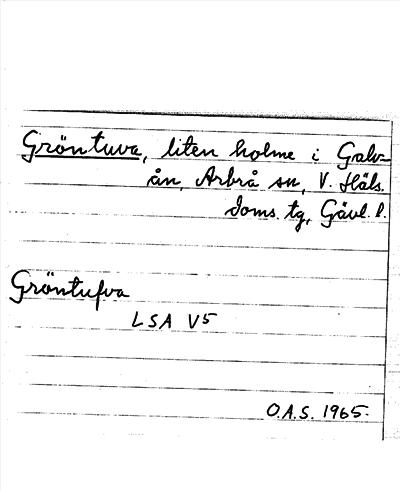 Gröntuva, liten holme i Galv-
ån, Arbrå sn, V. Häls.
doms. tg, Gävl. l.
Gröntufva
LSA V5
O.A.S. 1965.